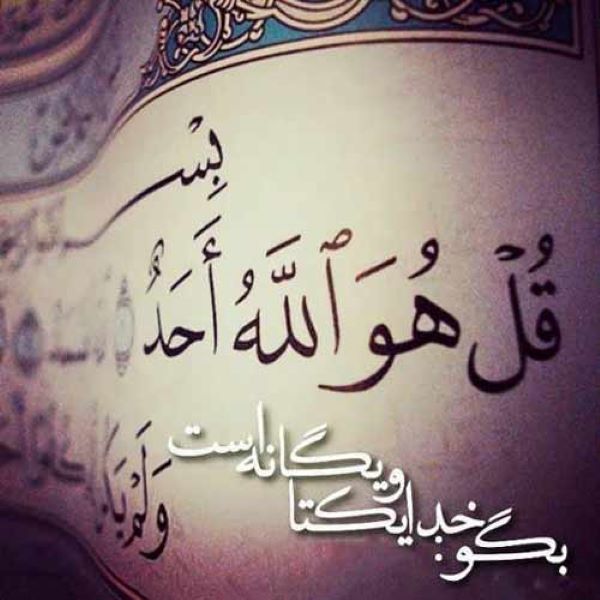 بِسْ
قُلْ هُوَ ٱللَّهُ أَحَدٌ
وَلَمْ يَكُ
بگو: خدا یکتا
و یگانه است